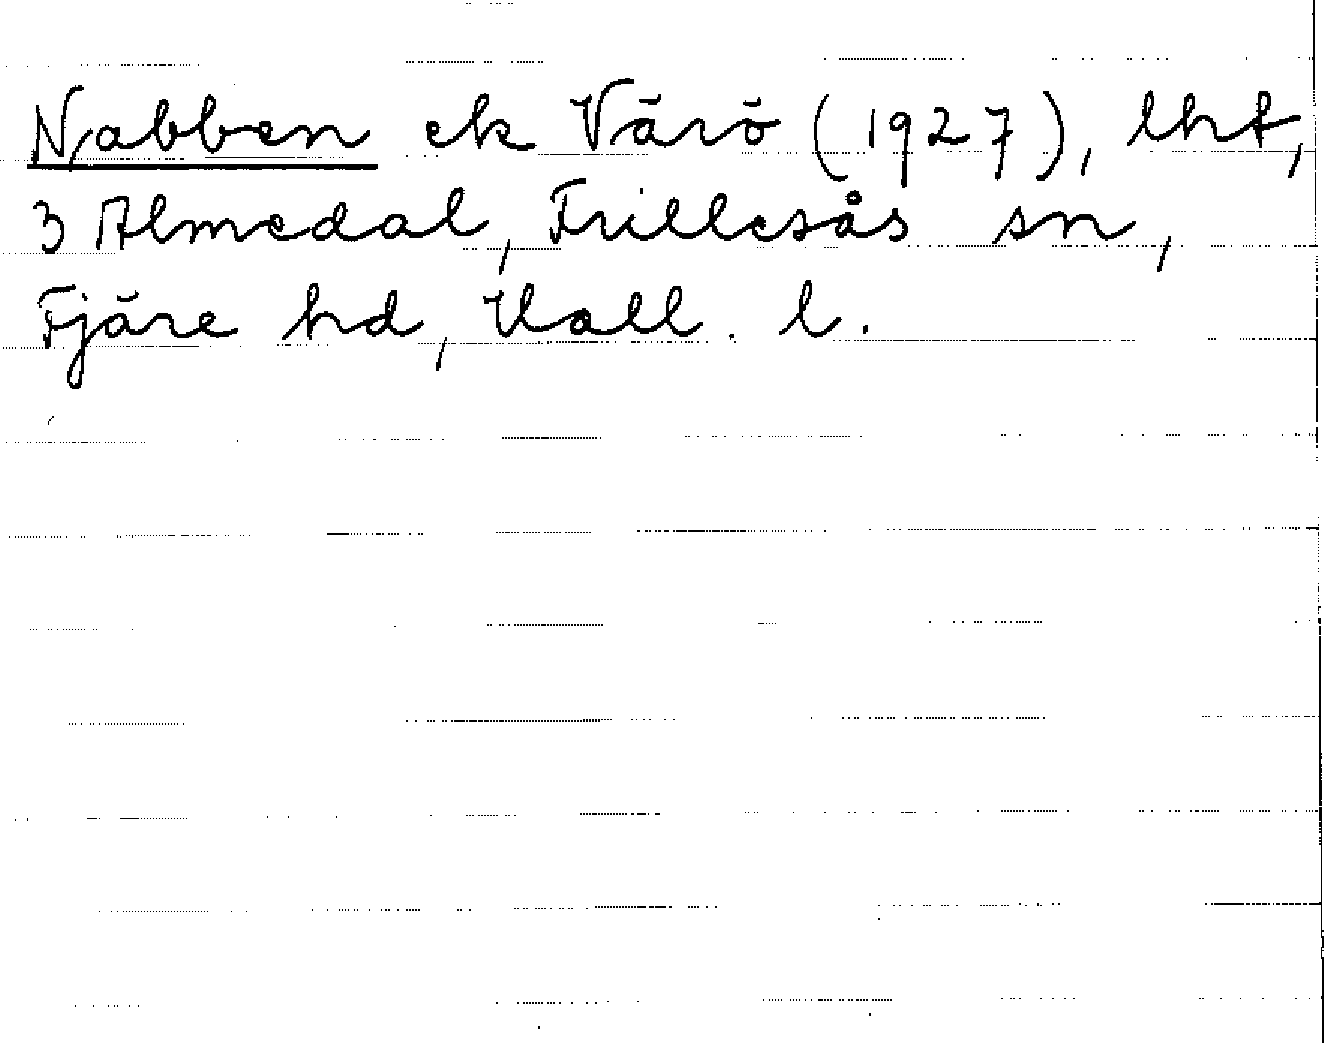 Nabben ek Värö (1927), lht,
3 Almedal, Frillesås sn,
Fjäre hd, Hall. l.